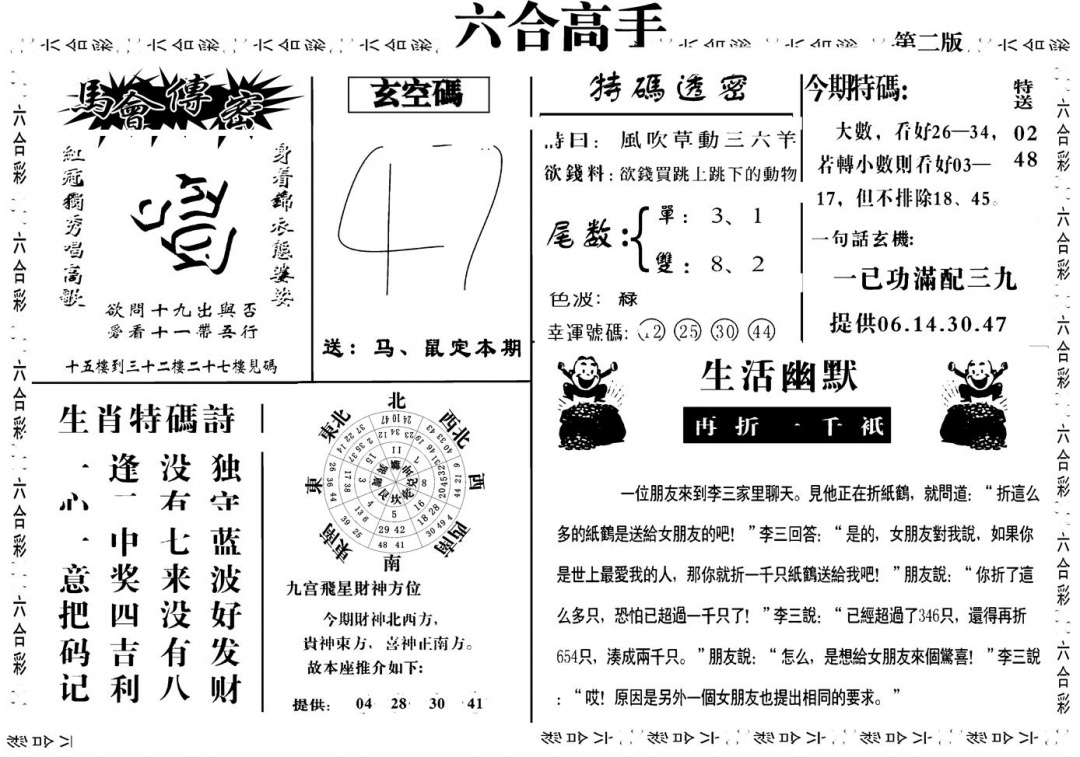 六合高手
第二版
馬會傳密
紅冠獨秀唱高歌
身着錦衣態婆娑
欲問十九出與否
愛看十一帶吾行
十五樓到三十二樓二十七樓見碼
玄空碼
47
送：马、鼠定本期
特碼透密
詩曰：風吹草動三六羊
欲錢料：欲錢買跳上跳下的動物
尾数：
單：3、1
雙：8、2
色波：緑
幸運號碼：12 25 30 44
今期特碼:
特送
02
48
大數，看好26—34，
若轉小數則看好03—
17，但不排除18、45。
一句話玄機:
一已功滿配三九
提供06.14.30.47
生肖特碼詩
独守蓝波好发财
没有七来没有八
逢二中奖四吉利
一心一意把码记
北
西北
西
西南
南
東南
東
東北
九宫飛星財神方位
今期財神北西方，
貴神東方，喜神正南方。
故本座推介如下:
提供: 04 28 30 41
生活幽默
再折一千祇
一位朋友來到李三家里聊天。見他正在折紙鶴，就問道：“折這么
多的紙鶴是送給女朋友的吧！”李三回答：“是的，女朋友對我說，如果你
是世上最愛我的人，那你就折一千只紙鶴送給我吧！”朋友說：“你折了這
么多只，恐怕已超過一千只了！”李三說：“已經超過了346只，還得再折
654只，湊成兩千只。”朋友說：“怎么，是想給女朋友來個驚喜！”李三說
：“哎！原因是另外一個女朋友也提出相同的要求。”
六合彩
六合彩
六合彩
六合彩
六合彩